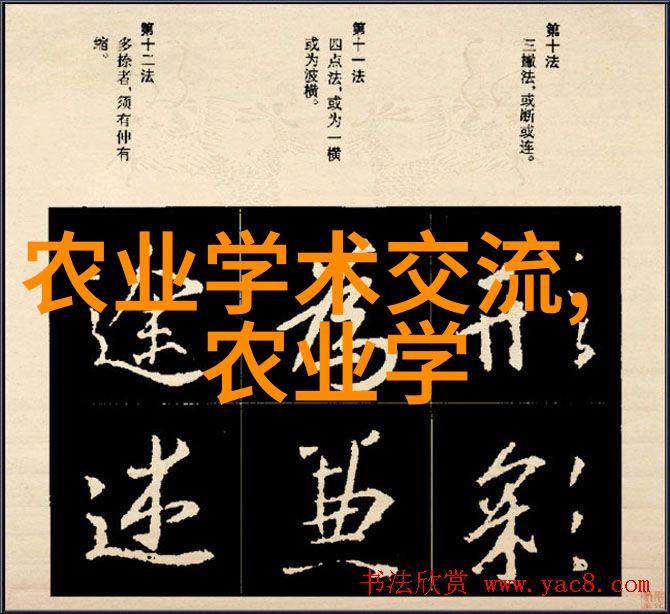 第十法
三撇法，或断或连。
第十一法
四点法，或为一横
或为波横。
第十二法
多捺者，须有伸有
缩。
农业学术交流，
农业学
形
彩
为
典
逐
述
书法欣赏 www.yac8.com